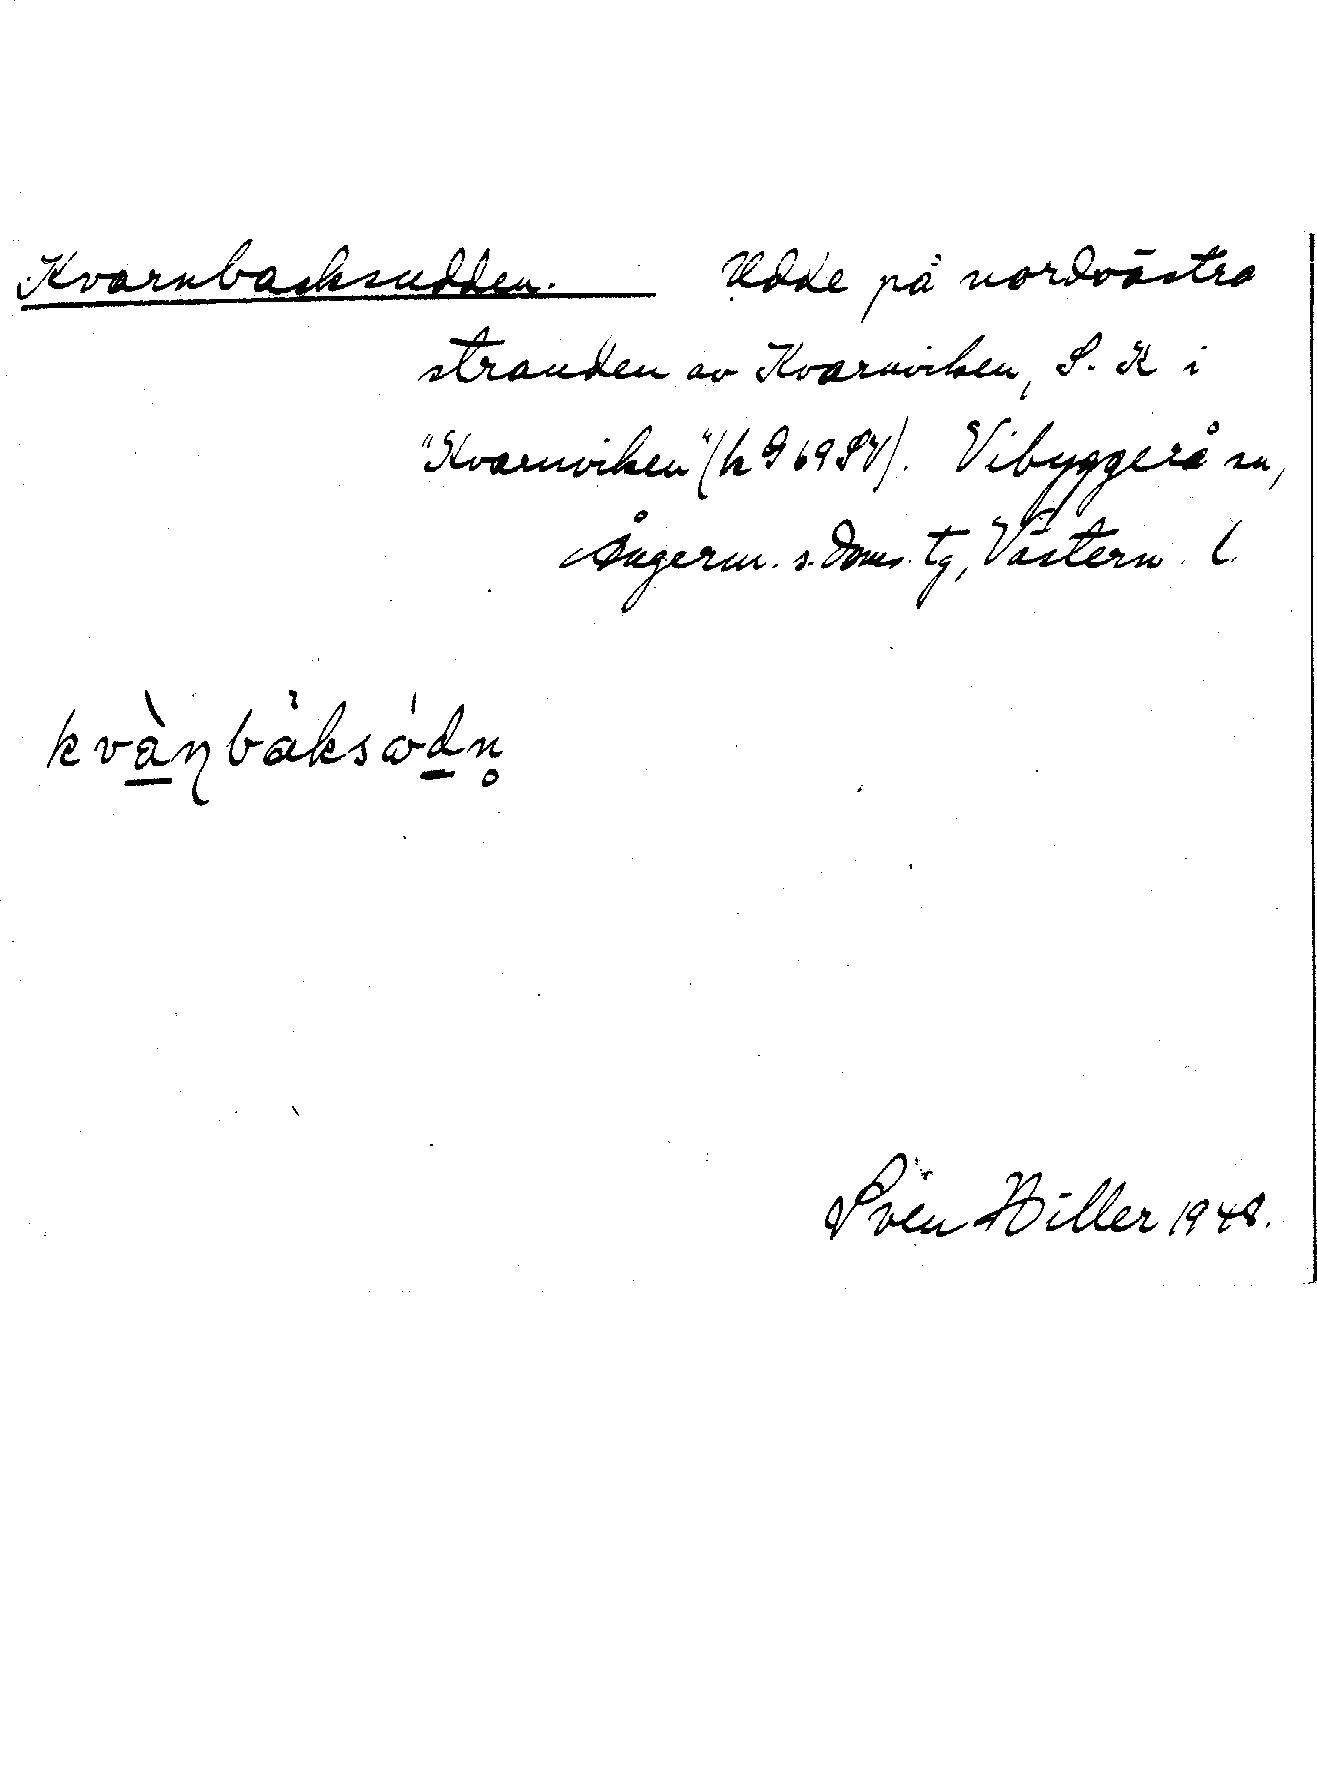 Kvarnbacksudden. Udde på nordvästra
stranden av Kvarnviken, S. K i
"Kvarnviken" (h 9 69 SV). Vibyggerå sn,
Ångerm. s. doms. tg, Västern. l.
kvàɳbàksódn̥
Sven Hiller 1948.